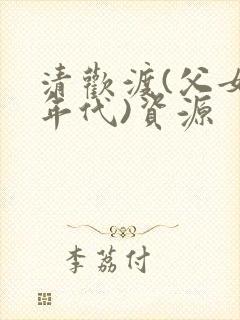 清歡渡(父女
年代)資源
李荔付